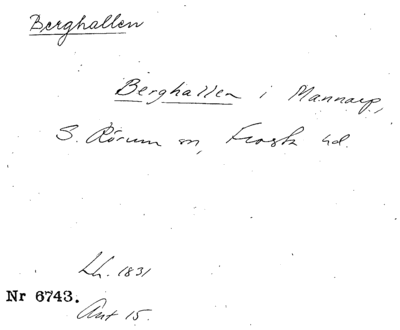 Berghallen
Berghallen i Mannarp,
S. Rörum sn, Frosta hd.
Lh. 1831
Nr 6743.
Ant 15.